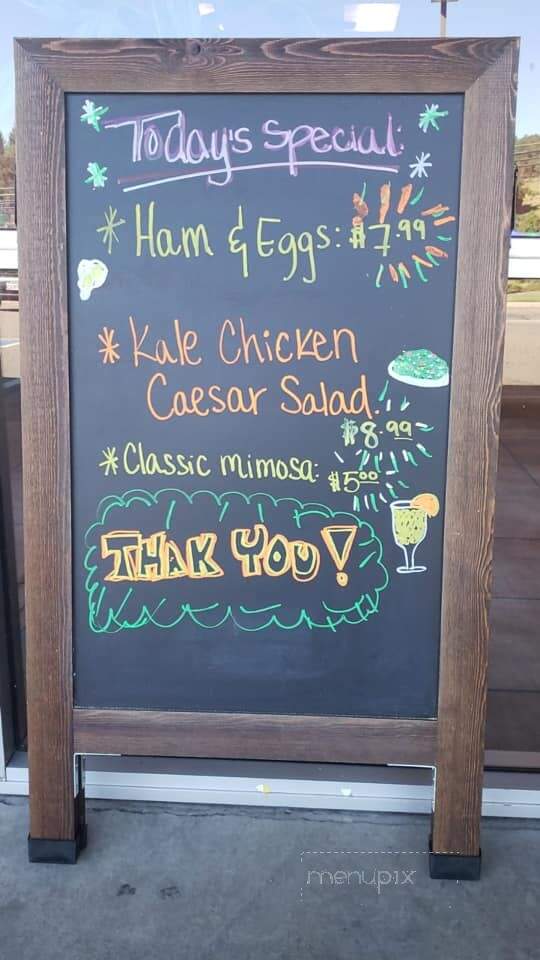 Today's Special:
* Ham & Eggs: $7.99
* Kale Chicken
Caesar Salad.
$8.99
* Classic mimosa: $5.00
THAK YOU!
menupix